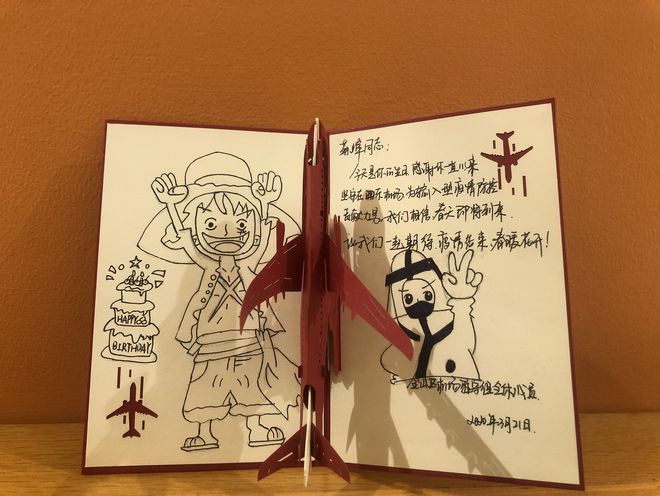 HAPPY
BIRTHDAY
同志：
今天是你的生日 感谢你一直以来
坚守在 机场 为输入型疫情防控
贡献力量，我们相信，春天即将到来。
让我们一起期待，疫情结束，春暖花开！
全体人员
2020年3月21日.